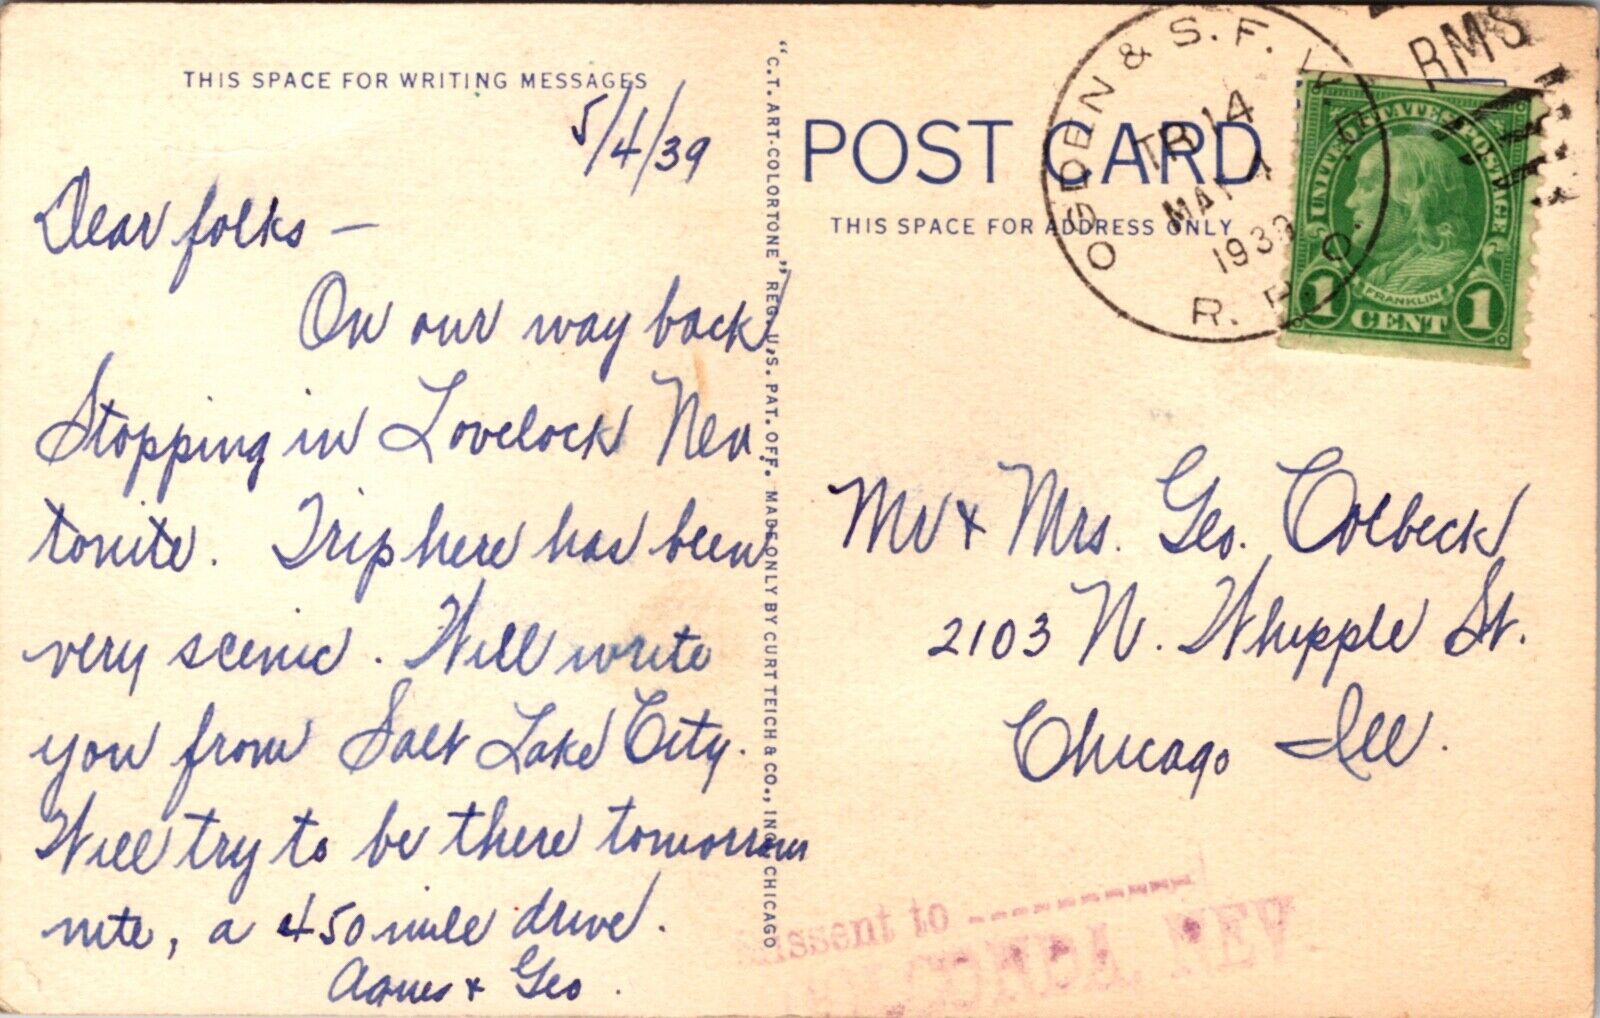 THIS SPACE FOR WRITING MESSAGES
5/4/39
Dear folks —
On our way back
Stopping in Lovelock Nev.
tonite. Trip here has been
very scenic. Will write
you from Salt Lake City.
Will try to be there tomorrow
nite, a 450 mile drive.
Agnes & Geo.
"C.T. ART-COLORTONE" REG. U.S. PAT. OFF. MADE ONLY BY CURT TEICH & CO., INC., CHICAGO
POST CARD
THIS SPACE FOR ADDRESS ONLY
OGDEN & S.F.
TR 14
MAY 4
1939
R.P.O.
RMS
UNITED STATES POSTAGE
FRANKLIN
1 CENT 1
Mr & Mrs. Geo. Colbeck
2103 N. Whipple St.
Chicago Ill.
Missent to ----------
GOLCONDA, NEV.